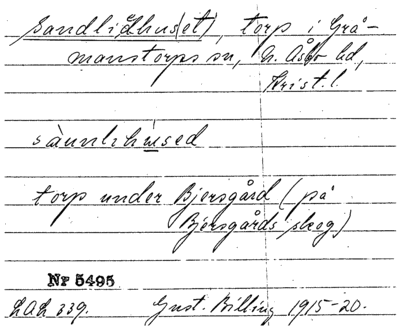 Sandlidhus(et), torp i Grå-
manstorps sn, N. Åsbo hd,
Krist. l.
torp under Bjersgård (på
Bjersgårds skog)
Nr 5495
LAL 339. Gust. Billing 1915-20.